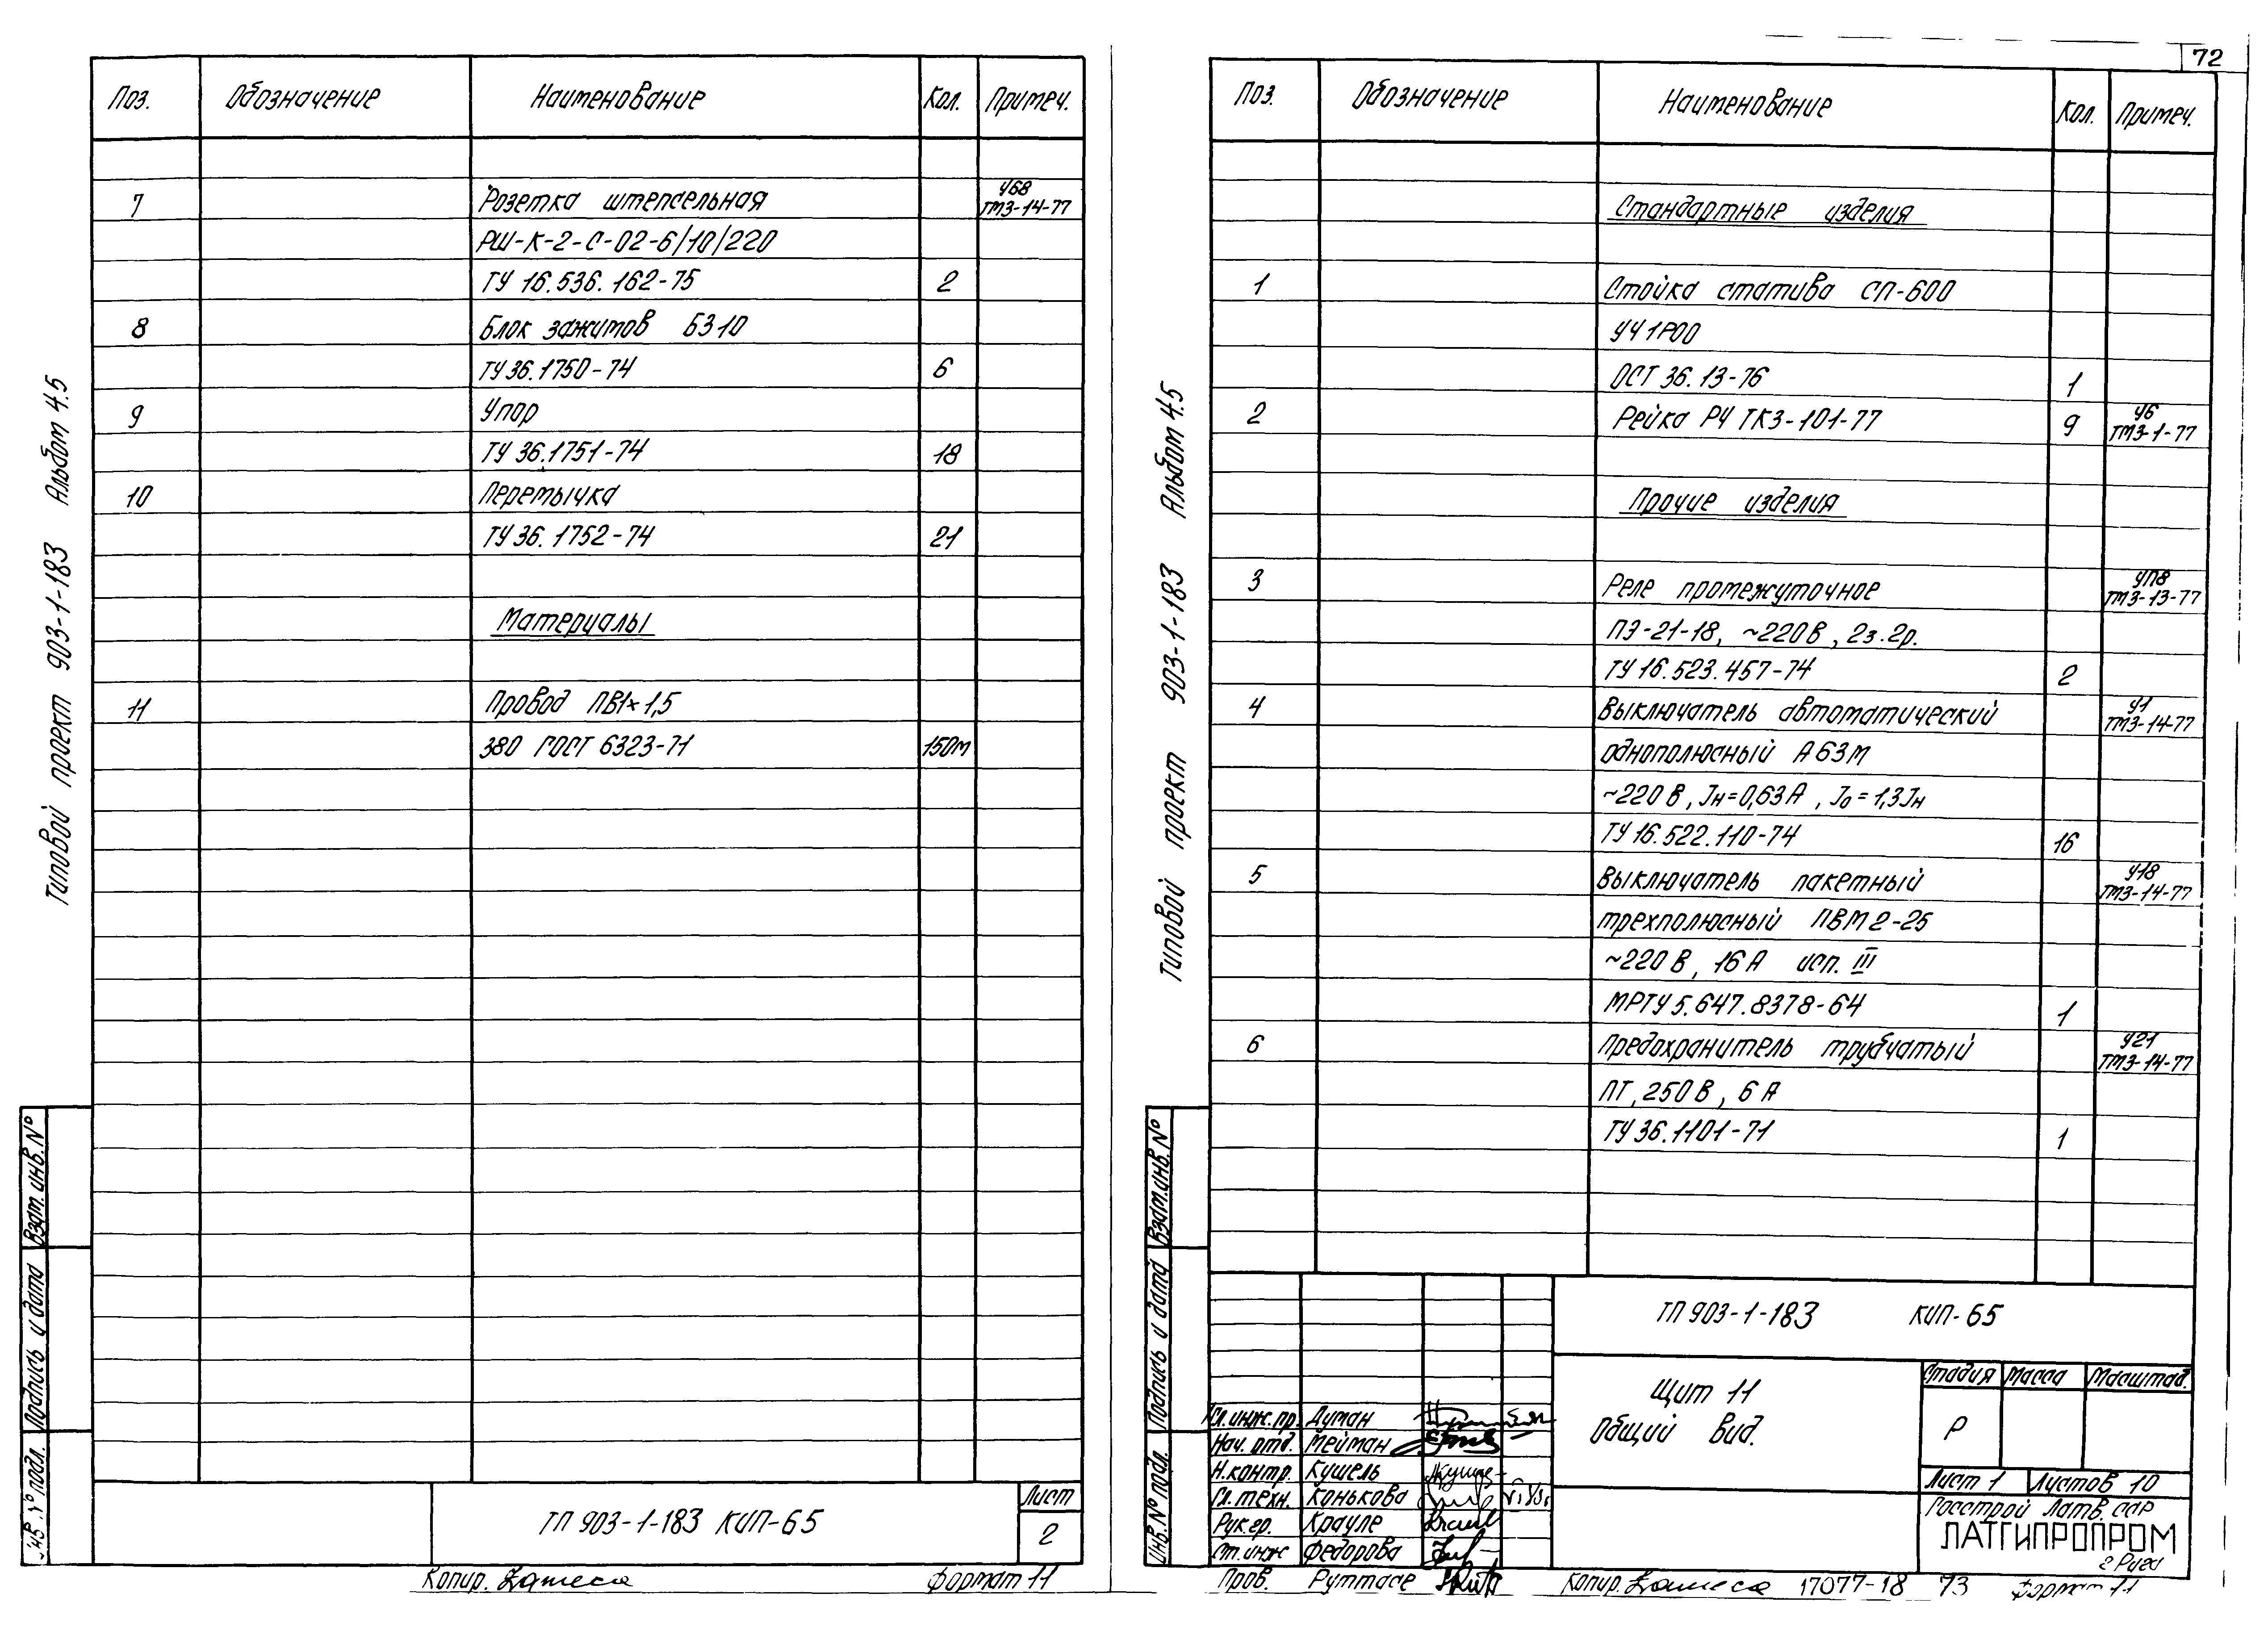 72
Типовой проект 903-1-183 Альбом 4.5
Поз. Обозначение Наименование Кол. Примеч.
7 Розетка штепсельная У68 ТМ3-14-77
РШ-К-2-С-02-6/10/220
ТУ 16.536.162-75 2
8 Блок зажимов БЗ10
ТУ 36.1750-74 6
9 Упор
ТУ 36.1751-74 18
10 Перемычка
ТУ 36.1752-74 21
Материалы
11 Провод ПВ1×1,5
380 ГОСТ 6323-71 150м
Взам. инв. №
Подпись и дата
Инв. № подл.
ТП 903-1-183 КИП-65
Лист
2
Копир. Формат 11
Типовой проект 903-1-183 Альбом 4.5
Поз. Обозначение Наименование Кол. Примеч.
Стандартные изделия
1 Стойка статива СП-600
УЧ 1Р00
ОСТ 36.13-76 1
2 Рейка РЧ ТК3-101-77 9 У6 ТМ3-1-77
Прочие изделия
3 Реле промежуточное УП8 ТМ3-13-77
ПЭ-21-18, ~220В, 2з.2р.
ТУ 16.523.457-74 2
4 Выключатель автоматический У1 ТМ3-14-77
однополюсный А63М
~220 В, Jн=0,63А, Jо=1,3Jн
ТУ 16.522.110-74 16
5 Выключатель пакетный У18 ТМ3-14-77
трехполюсный ПВМ2-25
~220 В, 16 А исп. III
МРТУ 5.647.8378-64 1
6 Предохранитель трубчатый У21 ТМ3-14-77
ПТ, 250 В, 6 А
ТУ 36.1101-71 1
Взам. инв. №
Подпись и дата
Инв. № подл.
ТП 903-1-183 КИП-65
Щит 11
Общий вид.
Стадия Масса Масштаб.
Р
Лист 1 Листов 10
Госстрой Латв. ССР
ЛАТГИПРОПРОМ
г. Рига
Гл. инж. пр. Думан
Нач. отд. Мейман
Н. контр. Кушель
Гл. техн. Конькова
Рук. гр. Крауле
Ст. инж Федорова
Пров. Руттасе
Копир. 17077-18 73 Формат 11